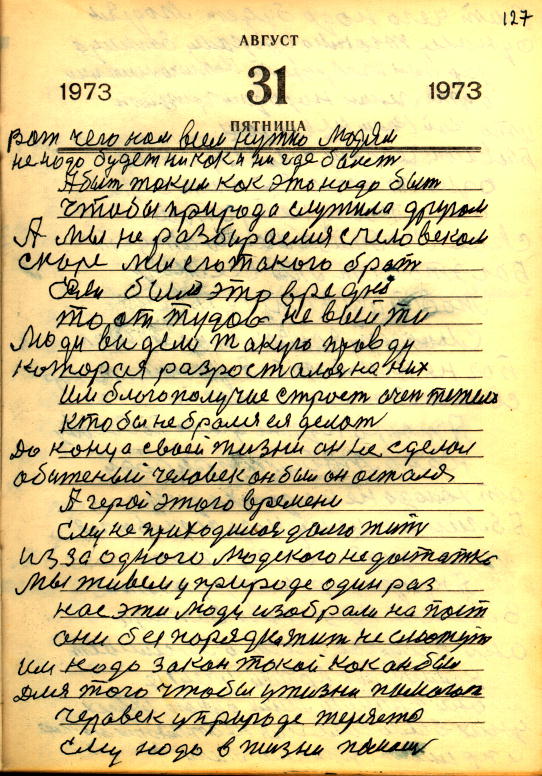 127
АВГУСТ
1973 31 1973
ПЯТНИЦА
вот чего нам всем нужно людям
не надо будет никаких им где болет
А быт таким как это надо быт
Чтобы природа служила другом
А мы не разбираемся с человеком
скоре мы его такого брат
Сели было это вредно
то от тудов не выйти
Люди видели такую правду
которая разросталоя на них
Им благополучие строет очен тежело
кто бы не бралея ея делат
До конца своей жизни он не сделал
обытеный человек он был он осталя
А герой этого времени
Ему не приходилоя долго жить
из за одного людского недостатка
Мы живем у природе один раз
нас эти люди избрали на пост
они без порядка жит не смогут
им надо закон такой как он был
Для того чтобы у жизни
человек у природе теряето
Ему надо в жизни